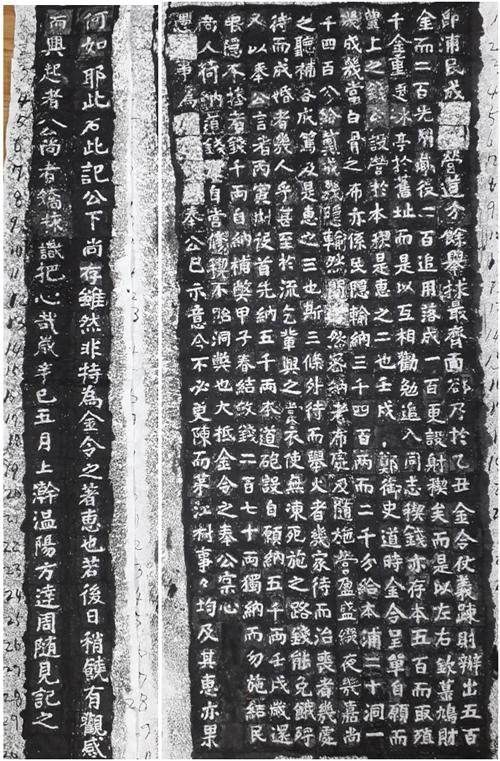 郎浦民成營道方餘擧採最齊面部乃於乙丑 金令仗義疎財辦出五百
金而二百先藏後二百追用落成一百更設射稧矣而是以左右欽募鳩財
千金重建氷亭於舊址而是以互相勸勉追入同志稧錢亦存本五百而取殖
上之錢公設營於本稧是惠之二也壬戌鄭御史道時金令呈單自願而
幾成幾當白骨之布亦係失隱輸納三千四百两而二千分給本浦二十洞一
千四百分給成幾隱輸然然客納老布處及隨施當盈盛夜幾嘉尚
之聽補各成篤及是惠之三也斯三條外待而擧火者幾家待而治喪者幾處
待而成婚者幾人乎甚至於流乞輩與之裳衣使無凍死施之路錢能免餓莩
又以奉公言者丙寅設首先納五千两本道砲設自願納五千两壬戌歲還
隱不落者錢千两自納補獘甲子春結斂錢二百七十两獨納而勿施結民
尙人荷納道錢自當修稧不貽洞獘也大抵金令之奉公宗心
事爲奉公已示意今不必更陳而茅江樹事々均及其惠亦果
何如耶此石此記公下尙存雖然非特爲金令之著惠也若後日稍饒有觀感
而興起者尙者矯抹識把心哉歲辛巳五月上澣温陽方達周隨見記之